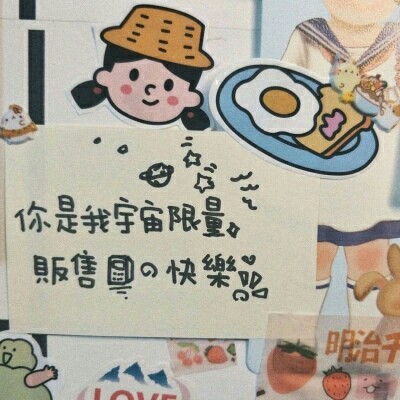 你是我宇宙限量
販售の快樂
明治チ
LOVE